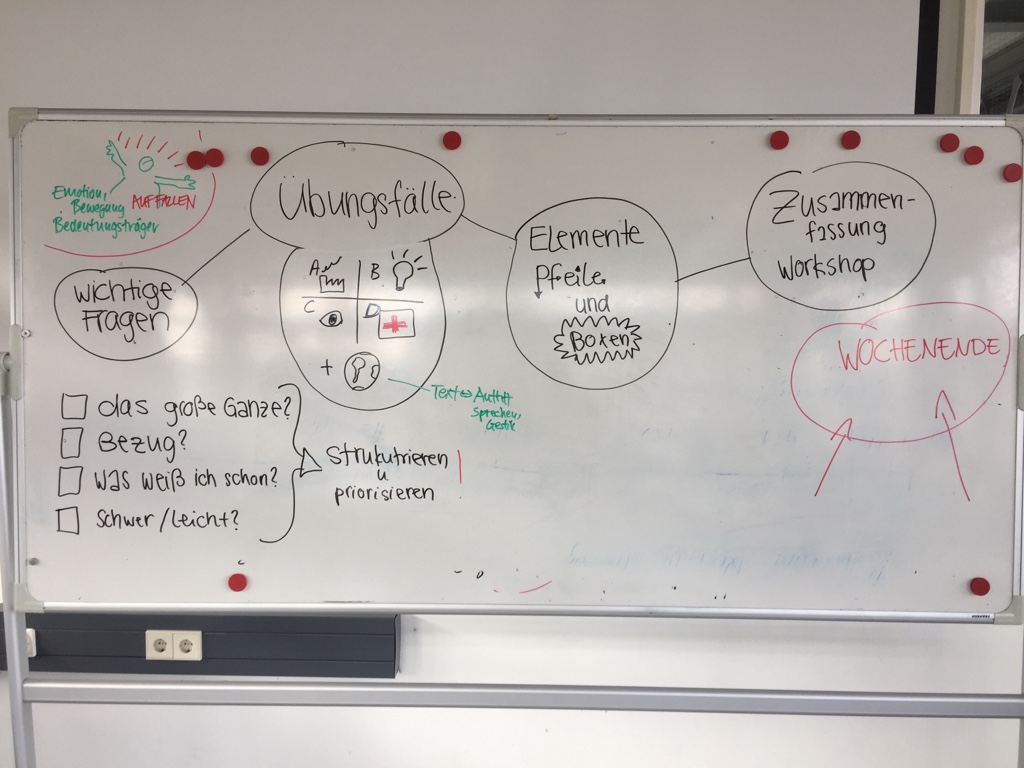 Emotion,
Bewegung
Bedeutungsträger
AUFFALLEN
Übungsfälle
A
B
C
D
+
Text ⇔ Auftritt
Sprechen,
Gestik
Wichtige
Fragen
das große Ganze?
Bezug?
Was weiß ich schon?
Schwer/leicht?
Strukutrieren
u
priorisieren
!
Elemente
Pfeile
und
Boxen
Zusammen-
fassung
Workshop
WOCHENENDE